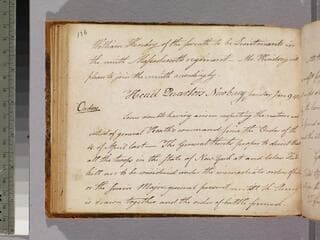 136
William Hemsley of the fourth to be Lieutenants in
the ninth Massachusetts regiment Mr
pleases to join the ninth accordingly.
Head Quarters Newburg Sunday Jan
Orders
Some doubt having arisen respecting the nature and
extent of general Heath's command from the Order of the
4 of April last The general thinks proper to direct that
all the troops in the State of New York at and below
are to be considered under the immediate orders of
or the Senior Major general present until the Army
is drawn together and the order of battle formed.